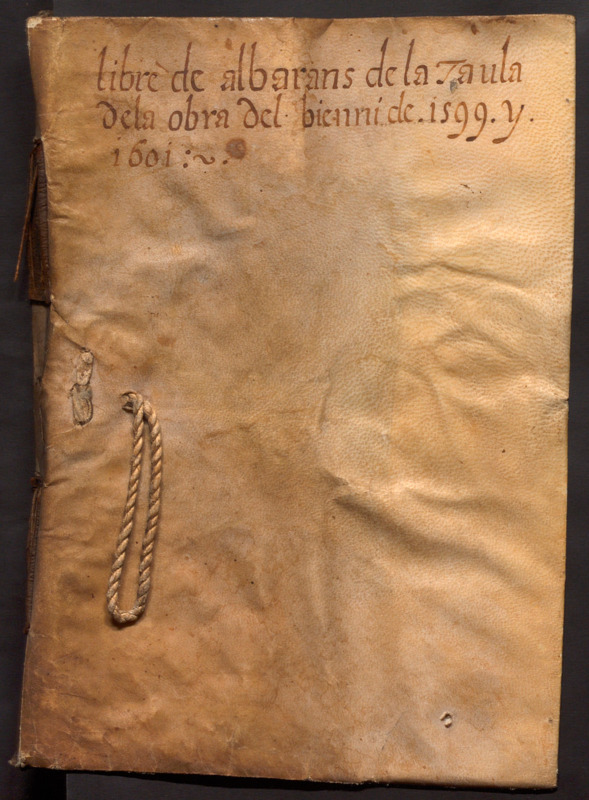 libre de albarans de la Taula
dela obra del bienni de .1599. y.
1601 : ~ .